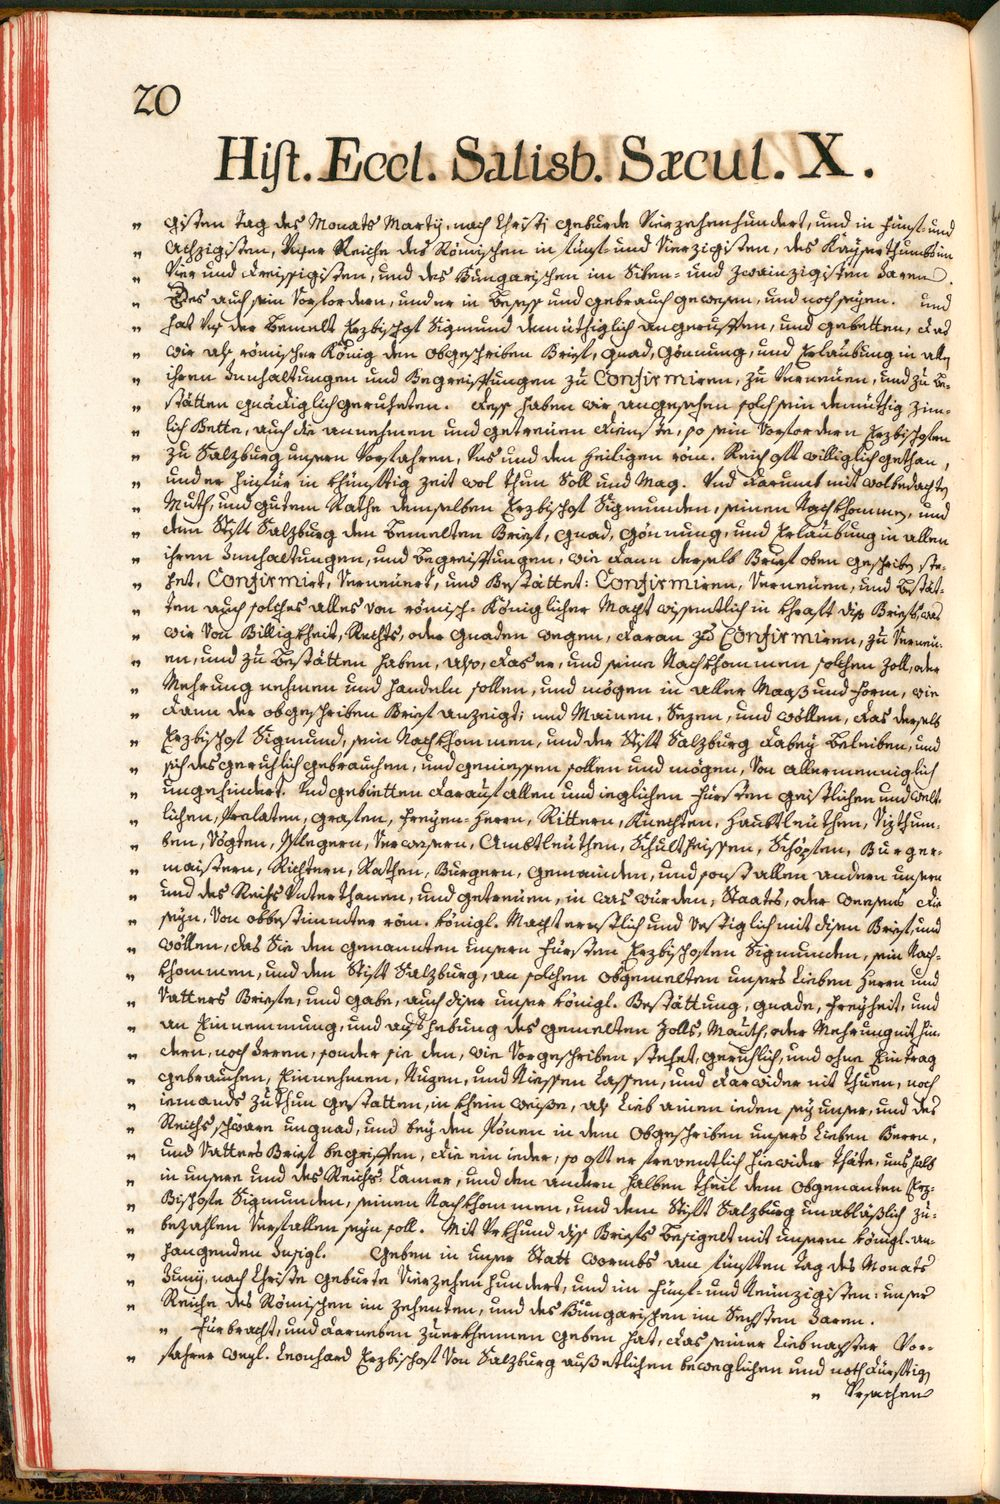 20
Hist. Eccl. Salisb. Sæcul. X.
„ gisten tag des Monats Martÿ, nach Christj geburde Vierzehenhundert, und in fünf- und
„ Achzigisten, Unser Reiche des Römischen in fünf- und Vierzigisten, des Kaÿserthumbs im
„ Vier und dreissigisten, und des Hungarischen im Siben- und zwainzigisten Jaren.
„ Des auch sein Vorfordern, und er in Besess und gebrauch gewesen, und noch seÿen. und
„ hat Uns der bemelt Erzbischof Sigmund demüthiglich angeruffen, und gebetten, das
„ wir als römischer König den obgeschriben Brief, gnad, gönnung, und Erlaubung in allen
„ ihren Innhaltungen und Begreiffungen zu Confirmiren, zu Verneüen, und zu Be-
„ stätten gnädiglich geruheten. dess haben wir angesehen solch sein demüthig zim-
„ lich Bette, auch die annehmen und getreuen dienste, so sein Vorfordern Erzbischofen
„ zu Salzburg unsern Vorfahren, Uns und den heiligen röm. Reich oft williglich gethan,
„ und er hinfür in khünfftig zeit wol thun Soll und Mag. Und darumb mit wolbedachten
„ Muth, und gutem Rathe demselben Erzbischof Sigmunden, seinen Nachkhommen, und
„ dem Stift Salzburg den bemelten Brief, gnad, gönnung, und Erlaubung in allen
„ ihren Innhaltungen, und begreiffungen, wie dann derselb Brief oben geschriben ste-
„ het, Confirmirt, Verneüert, und Bestättet: Confirmiren, Verneüen, und bestät-
„ ten auch solches alles von römisch-Königlicher Macht wissentlich in khraft diss Briefs, was
„ wir Von Billigkheit, Rechts, oder gnaden wegen, daran zu Confirmiren, zu Verneu-
„ en, und zu bestätten haben, also, das er, und seine Nachkhommen solchen Zoll, oder
„ Mehrung nehmen und handeln sollen, und mögen in aller Maaß und form, wie
„ dann der obgeschriben Brief anzeigt; und Mainen, Sezen, und wöllen, das derselb
„ Erzbischof Sigmund, sein Nachkhommen, und der Stift Salzburg dabeÿ beleiben, und
„ sich des geruhlich gebrauchen, und geniessen sollen und mögen, Von allermenniglich
„ ungehindert. Und gebietten darauf allen und ieglichen fürsten geistlichen und welt-
„ lichen, Prelaten, grafen, freÿen-herrn, Rittern, Knechten, haubtleüthen, Vizthum-
„ ben, Vögten, Pflegern, Verwesern, Ambtleüthen, Schultheissen, Schöpfen, Burger-
„ maistern, Richtern, Rathen, Burgern, gemainden, und sonst allen andern unsern
„ und des Reichs Unterthanen, und getreuen, in was würden, Staats, oder weesens die
„ seÿn, Von obbestimmter röm. königl. Macht ernstlich und Vestiglich mit disen Brief, und
„ wöllen, das Sie den genannten unsern fürsten Erzbischofen Sigmunden, sein Nach-
„ khommen, und den Stift Salzburg, an solchen obgemelten unsers Lieben herrn und
„ Vatters Briefe, und gabe, auch diser unser königl. Bestättung, gnade, freÿheit, und
„ an Einnemmung, und aufhebung des gemelten Zolls, Mauth, oder Mehrung nit hin-
„ dern, noch Irren, sonder sie den, wie Vorgeschriben stehet, geruhlich, und ohne Eintrag
„ gebrauchen, Einnehmen, Nuzen, und Niessen Lassen, und darwider nit thuen, noch
„ iemands zu thun gestatten, in khein weiße, als Lieb ainen ieden seÿ unser, und des
„ Reichs schwäre ungnad, und beÿ den Pönen in dem obgeschriben unsers Lieben Herrn,
„ und Vatters Brief begriffen, die ein ieder, so oft er freventlich hiewider thäte, uns halb
„ in unsere und des Reichs-Camer, und den andern halben theil dem obgenanten Erz-
„ Bischofe Sigmunden, seinen Nachkhommen, und dem Stift Salzburg unabläßlich zu-
„ bezahlen Verfallen seÿn soll. Mit Urkhund diss Briefs besigelt mit unserm königl. an-
„ hangenden Insigl. Geben in unser Statt Wormbs am fünften tag des Monats
„ Junÿ, nach Christe geburte Vierzehenhundert, und im fünf- und Neünzigisten: unser
„ Reiche des Römischen im zehenten, und des Hungarischen im Sechsten Jaren.
„ fürbracht, und darneben zuerkhennen geben hat, das seiner Lieb nachster Vor-
„ fahrer weÿl. Leonhard Erzbischof Von Salzburg auß etlichen beweglichen und nothdürfftigen
„ Ursachen